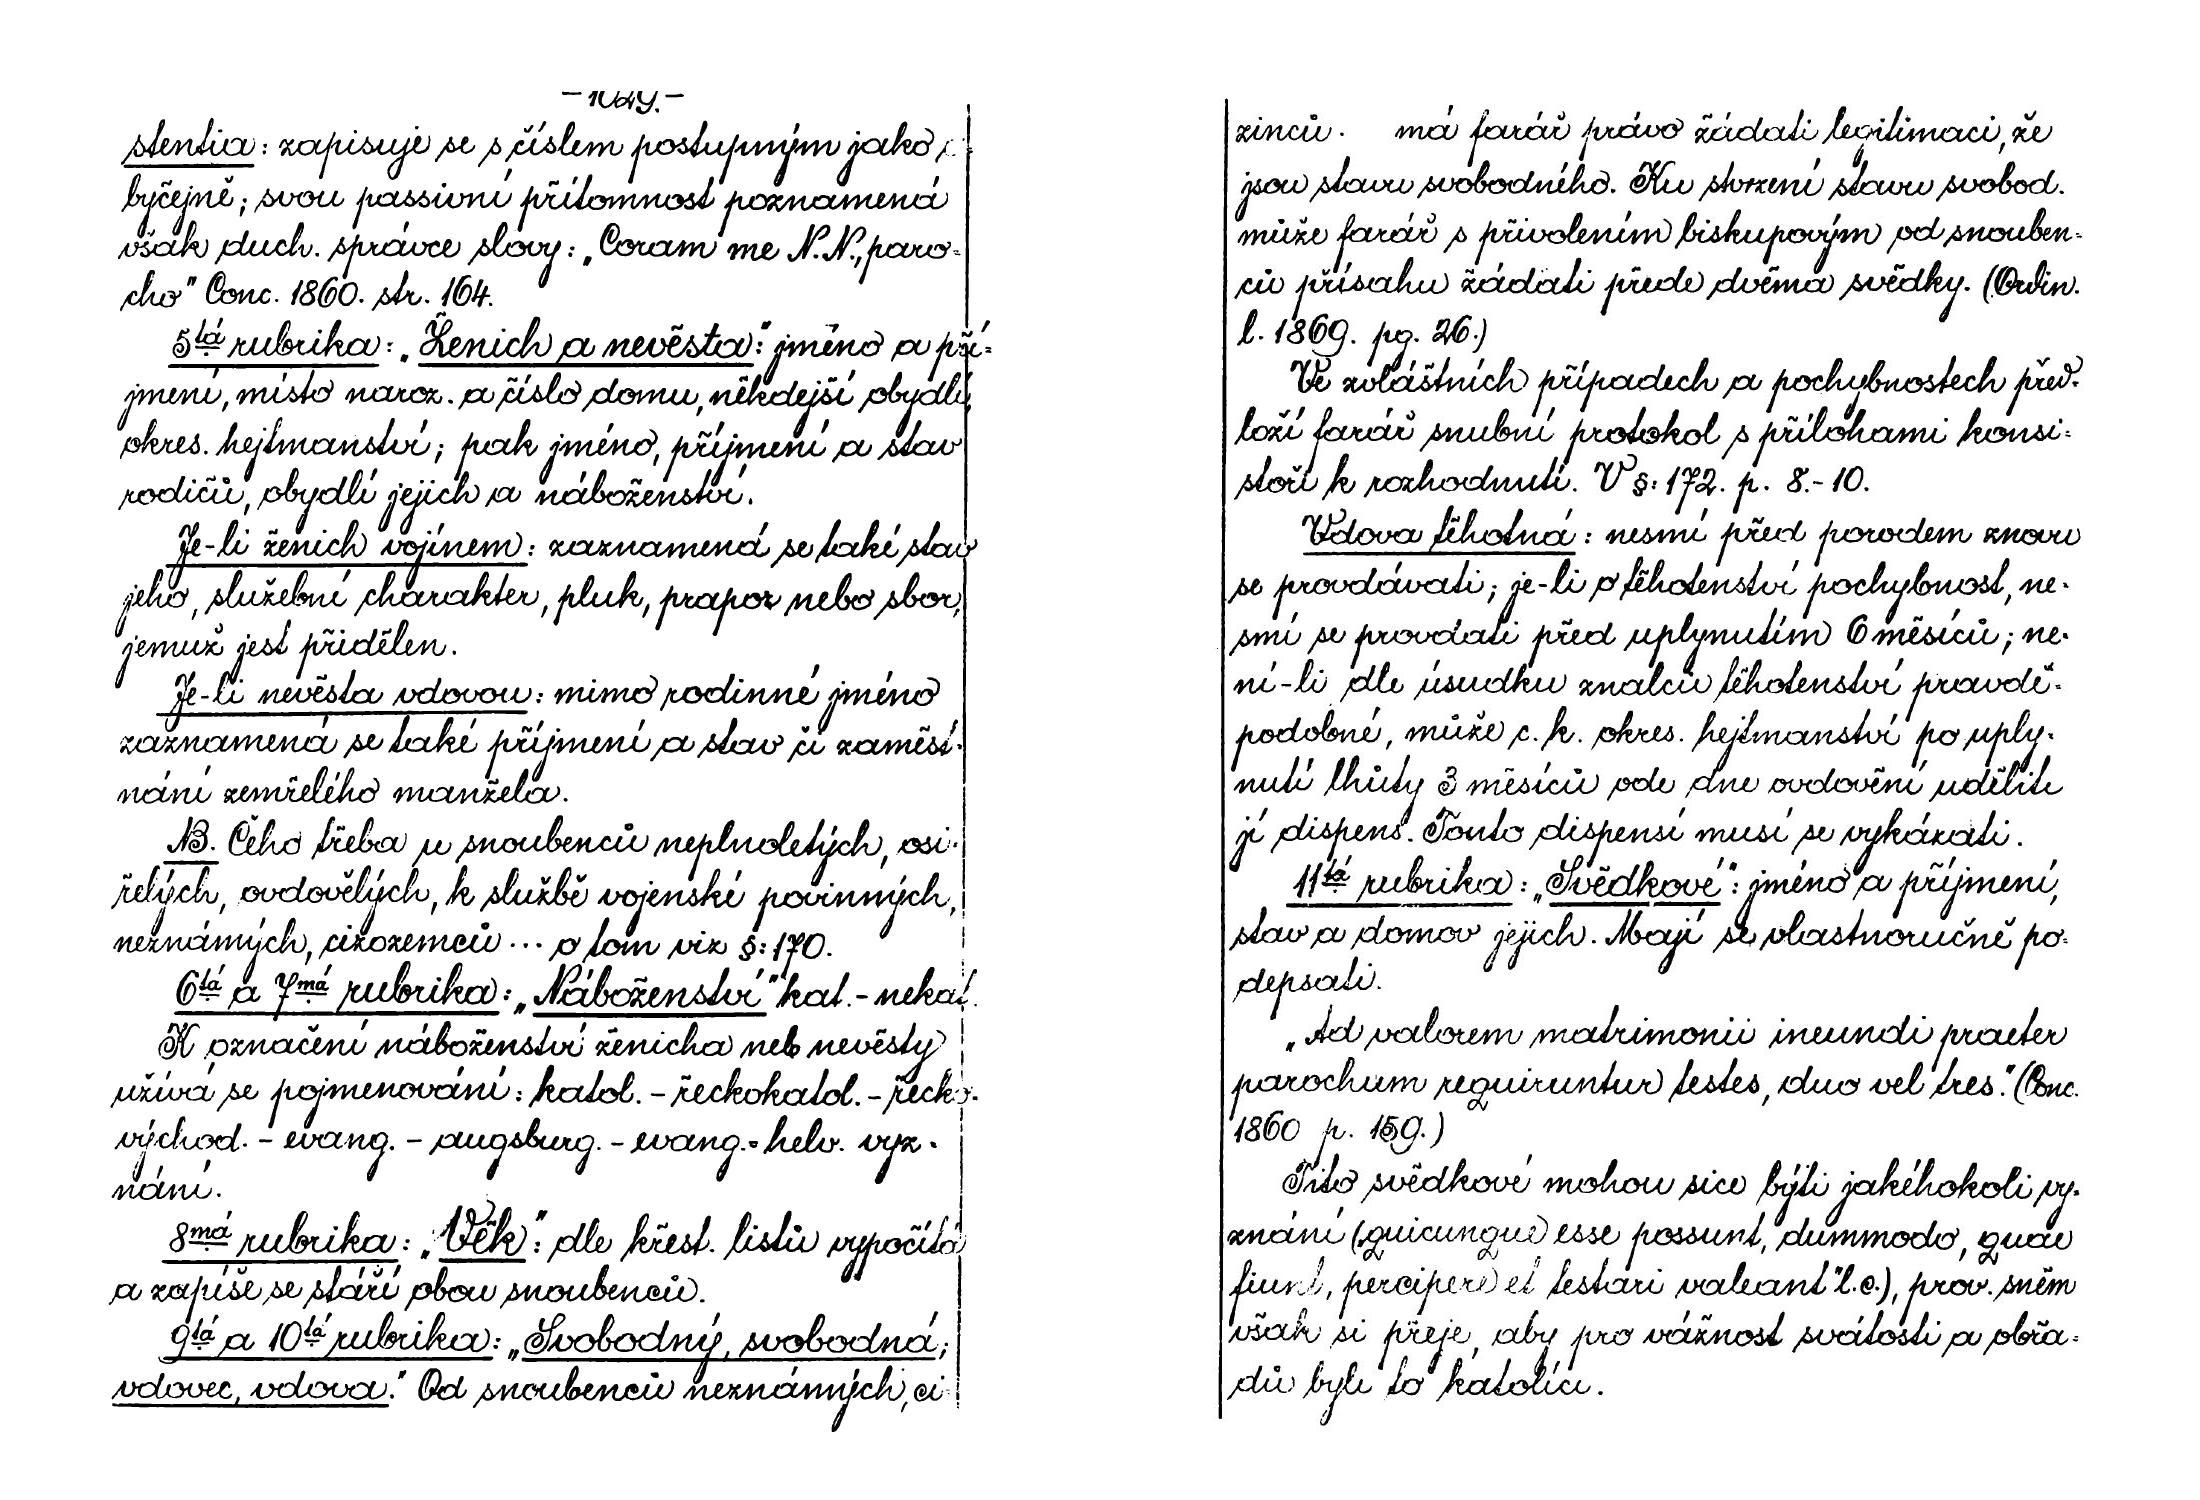 stentia: zapisuje se s číslem postupným jako
byčejně; svou passivní přítomnost poznamená
však duch. správce slovy: „Coram me N.N., paro=
cho" Conc. 1860. str. 164.
5tá rubrika: „Ženich a nevěsta:" jméno a pří=
jmení, místo naroz. a číslo domu, někdejší obydlí,
okres. hejtmanství; pak jméno, příjmení a stav
rodičů, obydlí jejich a náboženství.
Je-li ženich vojínem: zaznamená se také stav
jeho, služební charakter, pluk, prapor nebo sbor,
jemuž jest přidělen.
Je-li nevěsta vdovou: mimo rodinné jméno
zaznamená se také příjmení a stav či zaměst-
nání zemřelého manžela.
NB. Čeho třeba u snoubenců neplnoletých, osi-
řelých, ovdovělých, k službě vojenské povinných,
neznámých, cizozemců ... o tom viz §: 170.
6tá a 7má rubrika: „Náboženství" kat. - nekat.
K označení náboženství ženicha neb nevěsty
užívá se pojmenování: katol. - řeckokatol. - řecko-
východ. - evang. - augsburg. - evang. = helv. vyz-
nání.
8má rubrika: „Věk": dle křest. listů vypočítá
a zapíše se stáří obou snoubenců.
9tá a 10tá rubrika: „Svobodný, svobodná;
vdovec, vdova." Od snoubenců neznámých, ci-
zinců. má farář právo žádati legitimaci, že
jsou stavu svobodného. Ku stvrzení stavu svobod.
může farář s přivolením biskupovým od snouben=
ců přísahu žádati přede dvěma svědky. (Ordin.
l. 1869. pg. 26.)
Ve zvláštních případech a pochybnostech před-
loží farář snubní protokol s přílohami konsi-
stoři k rozhodnutí. V §: 172. p. 8.-10.
Vdova těhotná: nesmí před porodem znovu
se provdávati; je-li o těhotenství pochybnost, ne-
smí se provdati před uplynutím 6 měsíců; ne-
ní-li dle úsudku znalců těhotenství pravdě-
podobné, může c. k. okres. hejtmanství po uply-
nutí lhůty 3 měsíců ode dne ovdovění uděliti
jí dispens. Touto dispensí musí se vykázati.
11tá rubrika: „Svědkové": jméno a příjmení,
stav a domov jejich. Mají se vlastnoručně po-
depsati.
„Ad valorem matrimonii ineundi praeter
parochum requiruntur testes, duo vel tres." (Conc.
1860 p. 159.)
Tito svědkové mohou sice býti jakéhokoli vy-
znání (quicunque esse possunt, dummodo, quae
fiunt, percipere et testari valeant" l.c.), prov. sněm
však si přeje, aby pro vážnost svátosti a obřa-
dů byli to katolíci.